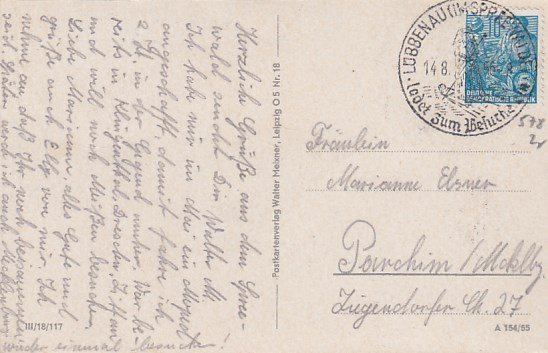 Herzlich Grüße aus dem Spree-
wald sendet Dir Walter M.
Ich habe mir im Mai ein Moped
angeschafft, damit fahre ich
z. Zt. in der Gegend umher. War be-
reits in Klingenthal, Dresden, Zittau
und will noch Meißen besuchen.
Liebe Marianne, alles Gute und
grüße auch Elly von mir. Ich
nehme an daß Ihr noch beisammen
seid. Später werd ich auch Mecklenburg
wieder einmal besuchen!
III/18/117
Postkartenverlag Walter Meixner, Leipzig O 5 Nr. 18
LÜBBENAU (IM SPREEWALD)
14.8.
ladet zum Besuche
DEUTSCHE
DEMOKRATISCHE REPUBLIK
578
Fräulein
Marianne Elsner
Parchim/Mcklbg.
Ziegendorfer Ch. 27
A 154/55